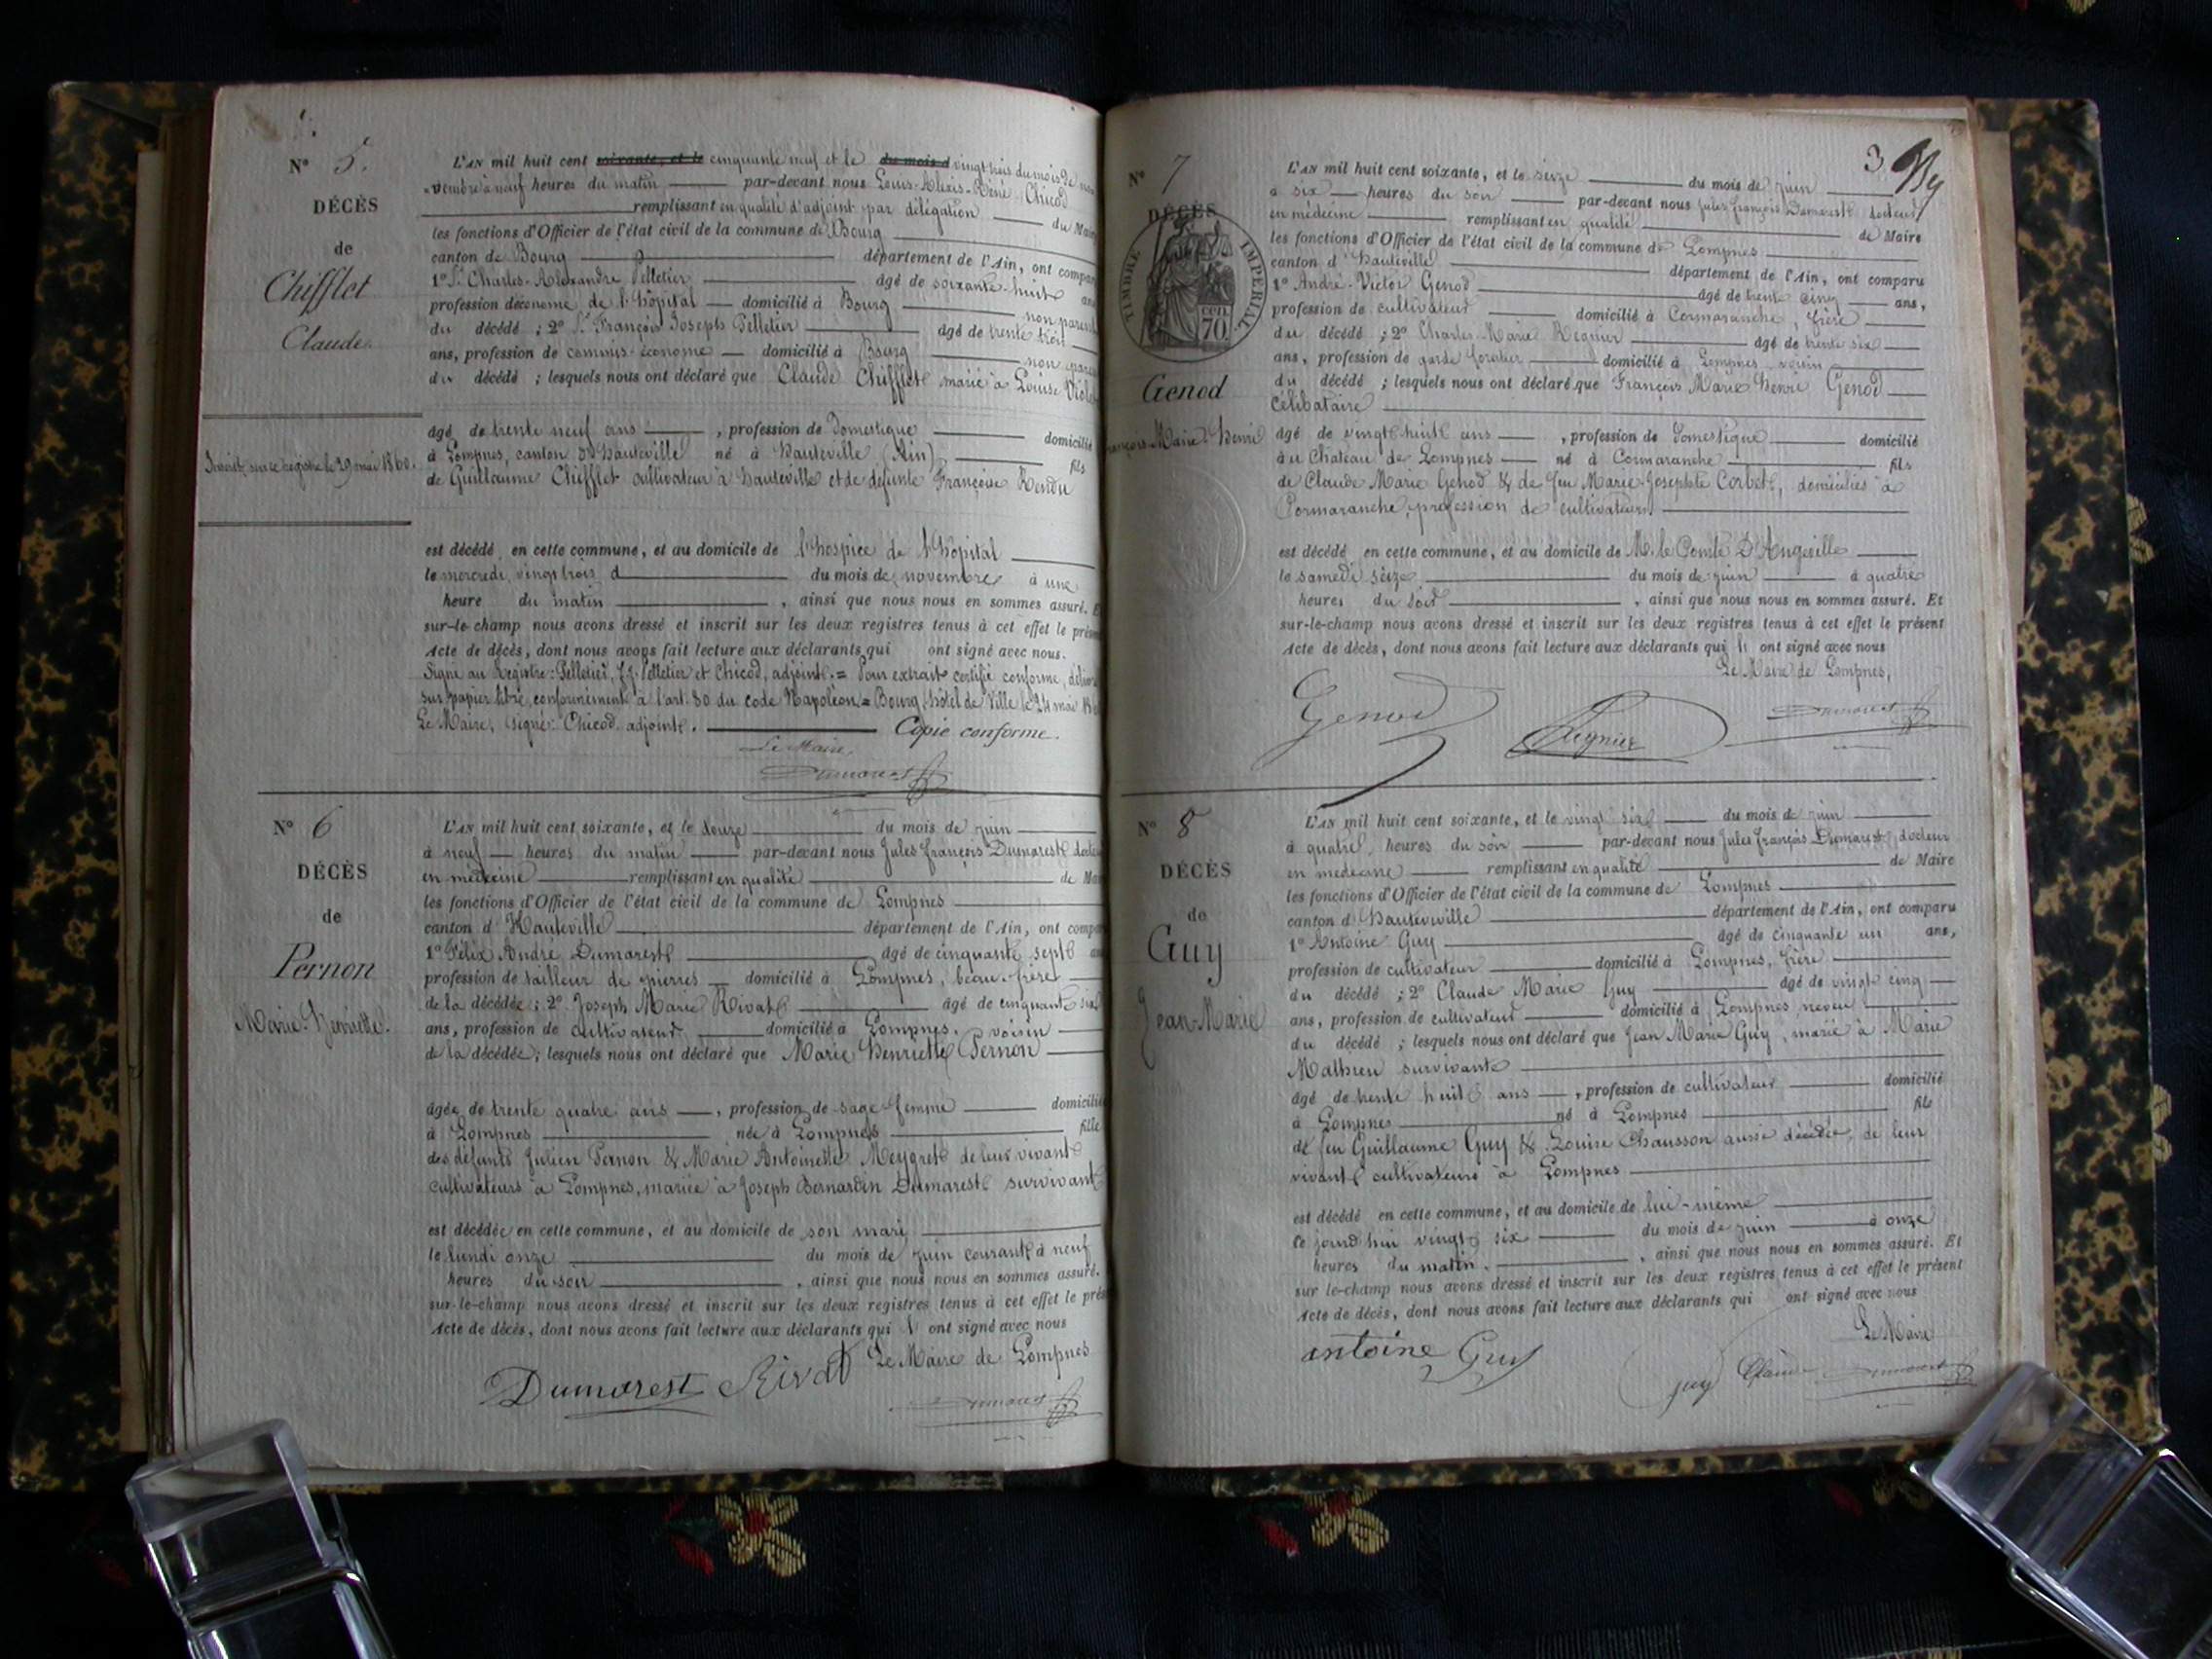 N° 5.
DÉCÈS
de
Chifflet
Claude.
Inscrit sur ce registre le 29 mai 1860.
L'AN mil huit cent soixante, et le cinquante neuf et le du mois d vingt trois du mois de
à neuf heures du matin par-devant nous Louis-Alexis-Réné Chicod
remplissant en qualité d'adjoint par délégation du Maire
les fonctions d'Officier de l'état civil de la commune de Bourg
canton de Bourg département de l'Ain, ont
1° Sr. Charles-Alexandre Pelletier âgé de soixante-huit ans
profession d'économe de l'hôpital domicilié à Bourg non parent
du décédé ; 2° Sr. François Joseph Pelletier âgé de trente trois
ans, profession de commis-économe domicilié à Bourg non
du décédé ; lesquels nous ont déclaré que Claude Chifflet marié à Louise Violet
âgé de trente neuf ans , profession de domestique domicilié
à Lompnes, canton d'Hauteville né à Hauteville (Ain) fils
de Guillaume Chifflet cultivateur à Hauteville et de défunte Françoise Rendu
est décédé en cette commune, et au domicile de l'hospice de l'hôpital
le mercredi vingt trois d du mois de novembre à une
heure du matin , ainsi que nous nous en sommes assuré. E
sur-le-champ nous avons dressé et inscrit sur les deux registres tenus à cet effet le
Acte de décès, dont nous avons fait lecture aux déclarants qui ont signé avec nous.
Signé au Registre : Pelletier, F.J. Pelletier et Chicod, adjoint. = Pour extrait certifié conforme,
sur papier libre, conformément à l'art. 80 du code Napoléon = Bourg, hôtel de Ville le 24 mai
Le Maire, signé : Chicod adjoint. Copie conforme.
Le Maire,
Dumarest
N° 6
DÉCÈS
de
Pernon
Marie-Henriette.
L'AN mil huit cent soixante, et le douze du mois de juin
à neuf heures du matin par-devant nous Jules François Dumarest
en médecine remplissant en qualité de
les fonctions d'Officier de l'état civil de la commune de Lompnes
canton d'Hauteville département de l'Ain, ont
1° Félix André Dumarest âgé de cinquante sept
profession de tailleur de pierres domicilié à Lompnes, beau-frère
de la décédée ; 2° Joseph Marie Rivat âgé de cinquante six
ans, profession de cultivateur domicilié à Lompnes, voisin
de la décédée; lesquels nous ont déclaré que Marie Henriette Pernon
âgée de trente quatre ans , profession de sage femme domicilié
à Lompnes née à Lompnes fille
des défunts Julien Pernon & Marie Antoinette Meygret de leur vivant
cultivateurs à Lompnes, mariée à Joseph Bernardin Dumarest survivant
est décédée en cette commune, et au domicile de son mari
le lundi onze du mois de juin courant à neuf
heures du soir , ainsi que nous nous en sommes assuré.
sur-le-champ nous avons dressé et inscrit sur les deux registres tenus à cet effet le
Acte de décès, dont nous avons fait lecture aux déclarants qui ont signé avec nous
Le Maire de Lompnes
Dumarest Rivat
Dumarest
3
N° 7
DÉCÈS
TIMBRE IMPÉRIAL
cen.
70
Genod
François-Marie-Henri
L'AN mil huit cent soixante, et le seize du mois de juin
à six heures du soir par-devant nous Jules François Dumarest docteur
en médecine remplissant en qualité de Maire
les fonctions d'Officier de l'état civil de la commune de Lompnes
canton d'Hauteville département de l'Ain, ont comparu
1° André-Victor Genod âgé de trente cinq ans,
profession de cultivateur domicilié à Cormaranche, frère
du décédé ; 2° Charles-Marie Regnier âgé de trente six
ans, profession de garde forestier domicilié à Lompnes voisin
du décédé ; lesquels nous ont déclaré que François Marie Henri Genod
célibataire
âgé de vingt-huit ans , profession de domestique domicilié
à au Chateau de Lompnes né à Cormaranche fils
de Claude Marie Genod & de feu Marie-Josephte Corbet, domiciliés à
Cormaranche, profession de cultivateurs
est décédé en cette commune, et au domicile de M. le Comte D'Angeville
le samedi seize du mois de juin à quatre
heures du soir , ainsi que nous nous en sommes assuré. Et
sur-le-champ nous avons dressé et inscrit sur les deux registres tenus à cet effet le présent
Acte de décès, dont nous avons fait lecture aux déclarants qui ont signé avec nous
Le Maire de Lompnes,
Genod Regnier Dumarest
N° 8
DÉCÈS
de
Guy
Jean-Marie
L'AN mil huit cent soixante, et le vingt six du mois de juin
à quatre heures du soir par-devant nous Jules François Dumarest, docteur
en médecine remplissant en qualité de Maire
les fonctions d'Officier de l'état civil de la commune de Lompnes
canton d'Hauteville département de l'Ain, ont comparu
1° Antoine Guy âgé de cinquante un ans,
profession de cultivateur domicilié à Lompnes, frère
du décédé ; 2° Claude Marie Guy âgé de vingt cinq
ans, profession de cultivateur domicilié à Lompnes neveu
du décédé ; lesquels nous ont déclaré que Jean Marie Guy, marié à Marie
Mathieu survivante
âgé de trente huit ans , profession de cultivateur domicilié
à Lompnes né à Lompnes fils
de feu Guillaume Guy & Louise Chausson aussi décédée, de leur
vivant cultivateurs à Lompnes
est décédé en cette commune, et au domicile de lui-même
ce jourd'hui vingt six du mois de juin à onze
heures du matin. , ainsi que nous nous en sommes assuré. Et
sur-le-champ nous avons dressé et inscrit sur les deux registres tenus à cet effet le présent
Acte de décès, dont nous avons fait lecture aux déclarants qui ont signé avec nous
Le Maire
antoine Guy
guy Claude Dumarest